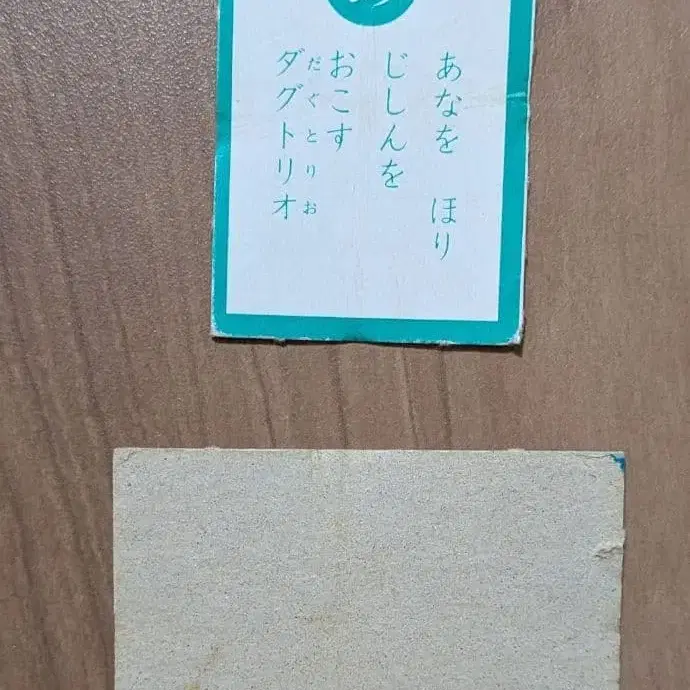 あなを ほり
じしんを
おこす
ダグトリオ
だぐとりお